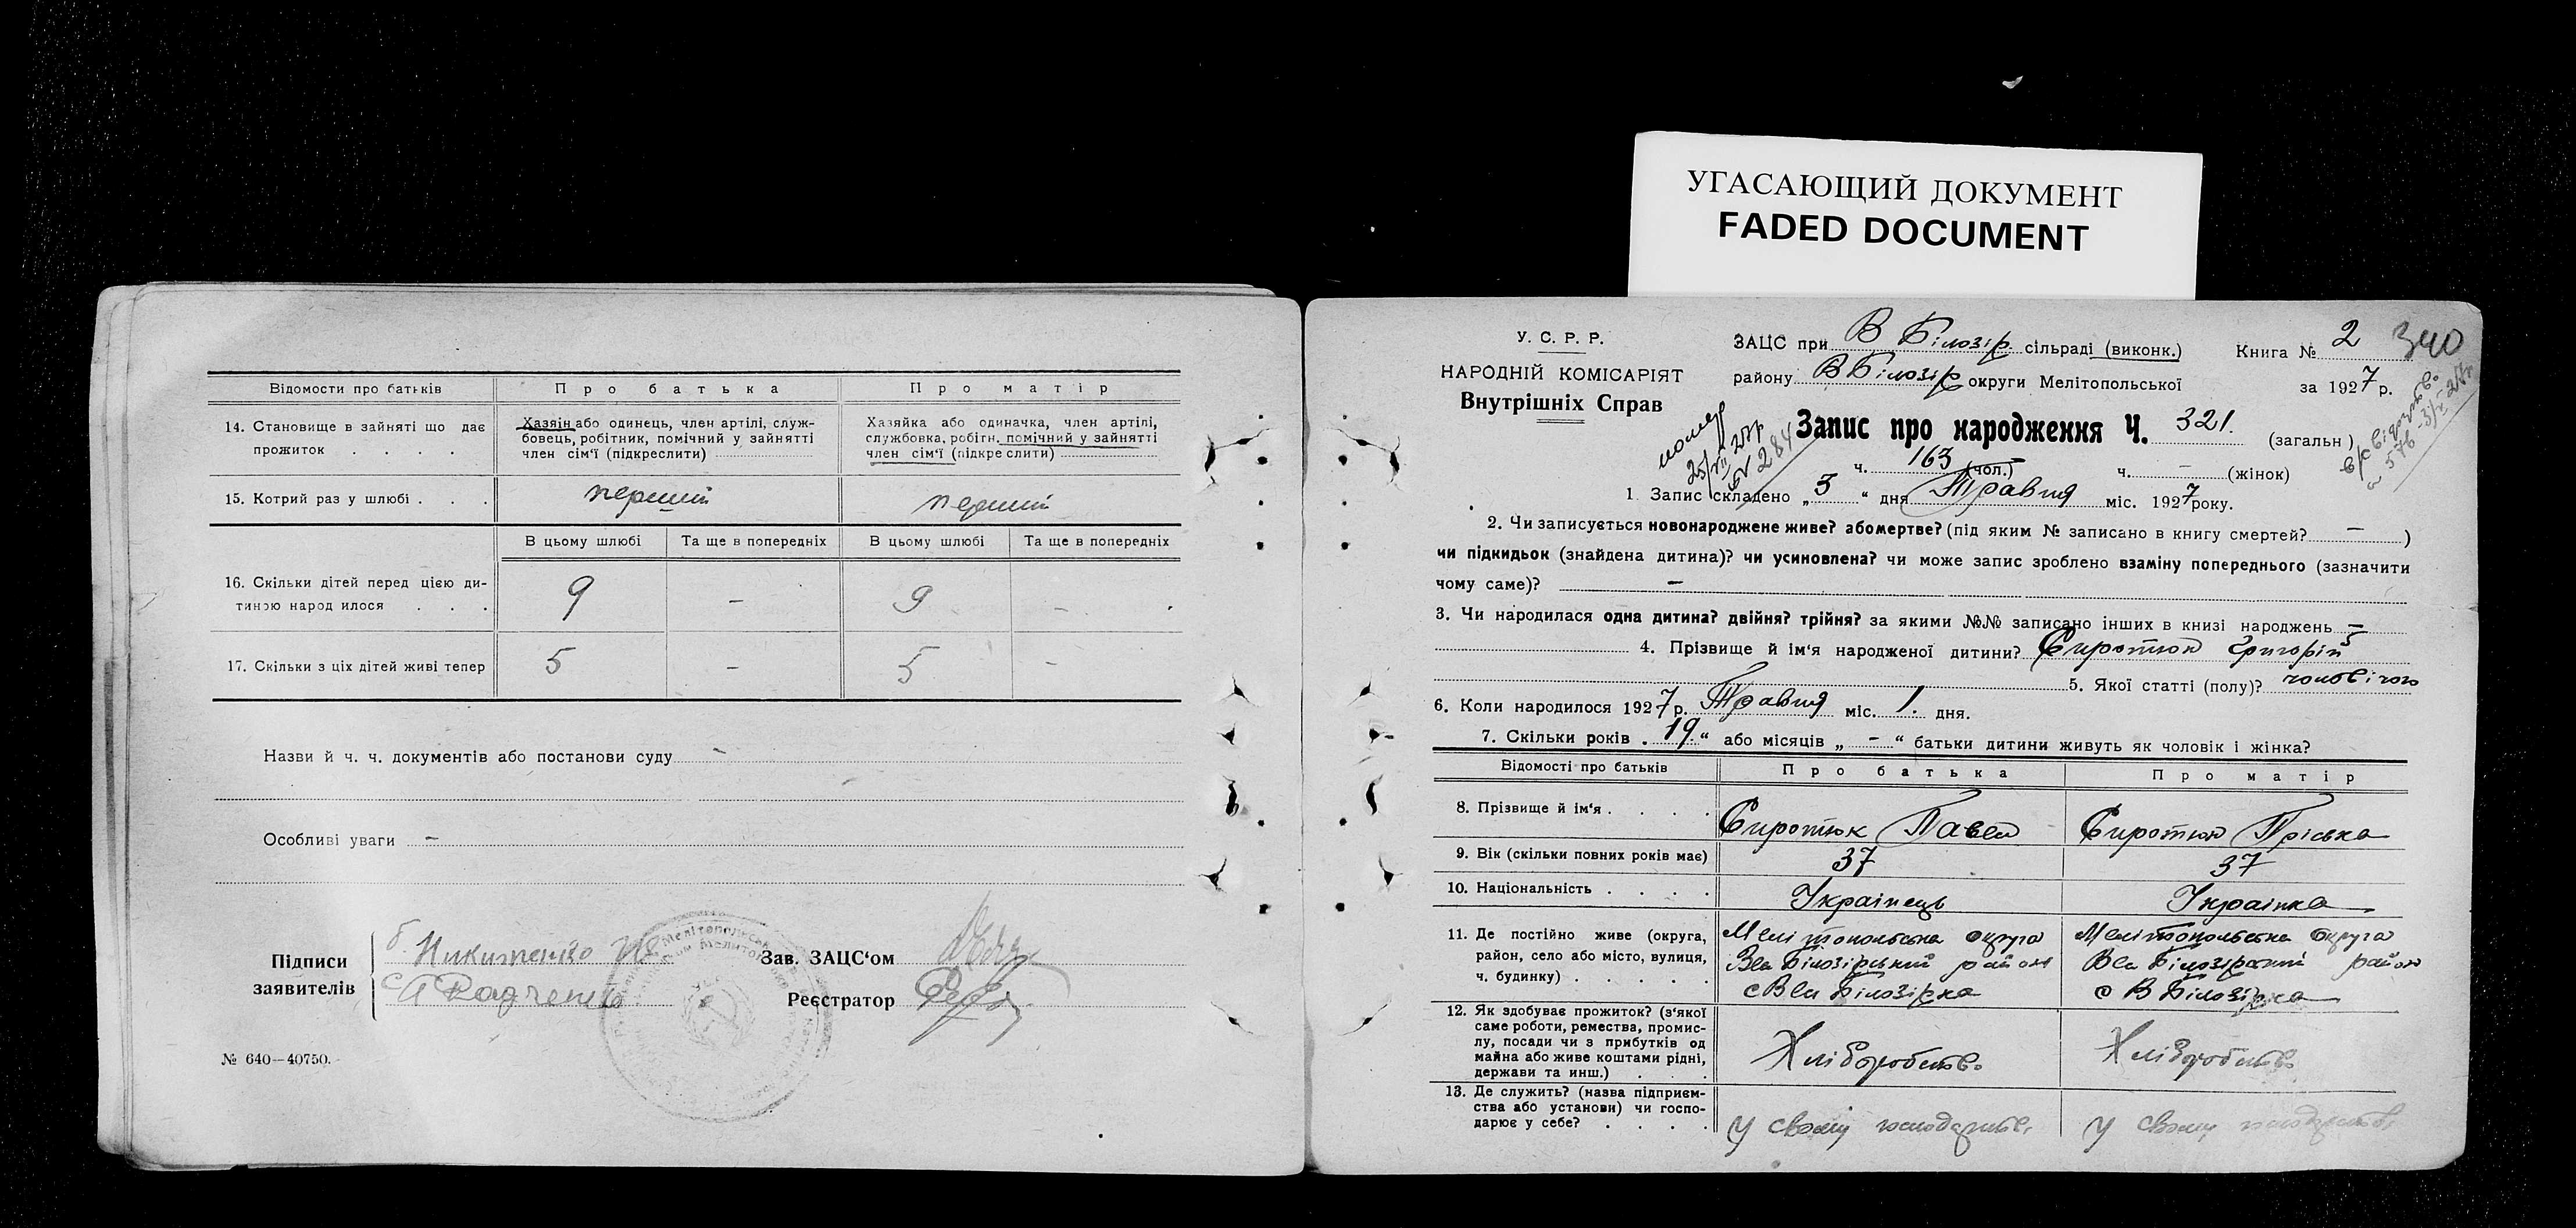 УГАСАЮЩИЙ ДОКУМЕНТ
FADED DOCUMENT
Відомости про батьків
Про батька
Про матір
14. Становище в зайняті що дає прожиток . . . .
Хазяін або одинець, член артілі, служ-
бовець, робітник, помічний у зайнятті
член сім'ї (підкреслити)
Хазяйка або одиначка, член артілі,
службовка, робітн. помічний у зайнятті
член сім'ї (підкреслити)
15. Котрий раз у шлюбі . . .
перший
перший
В цьому шлюбі
Та ще в попередніх
В цьому шлюбі
Та ще в попередніх
16. Скільки дітей перед цією ди-
тиною народилося . . .
9 - 9 -
17. Скільки з ціх дітей живі тепер
5 - 5 -
Назви й ч. ч. документів або постанови суду -
Особливі уваги -
Підписи
заявителів
Никитенко
Радченко
Зав. ЗАЦС'ом
Реєстратор
№ 640—40750.
У. С. Р. Р.
НАРОДНІЙ КОМІСАРІЯТ
Внутрішніх Справ
ЗАЦС при В Білозір. сільраді (виконк.)
Книга № 2 340
району В Білозір округи Мелітопольської
за 1927 р.
номер
№ 284
Запис про народження Ч. 321. (загальн)
ч. 163 (чол.) ч. — (жінок)
1. Запис складено „3“ дня Травня міс. 1927 року.
2. Чи записується новонароджене живе? або мертве? (під яким № записано в книгу смертей? — )
чи підкидьок (знайдена дитина)? чи усиновлена? чи може запис зроблено взаміну попереднього (зазначити
чому саме)? —
3. Чи народилася одна дитина? двійня? трійня? за якими №№ записано інших в книзі народжень —
4. Прізвище й ім'я народженої дитини? Сиротюк Григорій
5. Якої статті (полу)? чоловічого
6. Коли народилося 1927 р. Травня міс. 1. дня.
7. Скільки років „19.“ або місяців „ - “ батьки дитини живуть як чоловік і жінка?
Відомості про батьків
Про батька
Про матір
8. Прізвище й ім'я . . . .
Сиротюк Павел
Сиротюк Пріська
9. Вік (скільки повних років має)
37
37
10. Національність . . . .
Українець
Українка
11. Де постійно живе (округа,
район, село або місто, вулиця,
ч. будинку) . . . . .
Мелітопольська округа
Вел Білозірський район
с Вел Білозірка
Мелітопольська округа
Вел Білозірський район
с В Білозірка
12. Як здобуває прожиток? (з'якої
саме роботи, ремества, промис-
лу, посади чи з прибутків од
майна або живе коштами рідні,
держави та инш.) . .
Хліборобство
Хліборобство
13. Де служить? (назва підприєм-
ства або установи) чи госпо-
дарює у себе? . . . .
У своїй господарстві
У своему господарстві